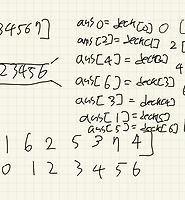 34567]
23456
ans0=deck[0] 0 [
ans[2]=deck[1] 2 [
ans[4]=deck[2] 4
ans[6]=deck[3] 6
ans[3]=deck[4]
ans[1]=deck[5]
ans[5]=deck[6]
1 6 2 5 3 7 4]
0 1 2 3 4 5 6